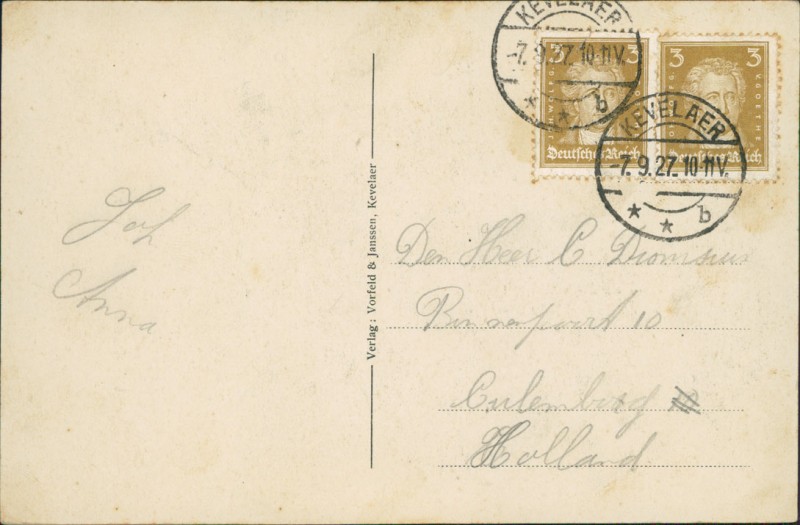 KEVELAER
-7.9.27.10-11V.
* * b
3 3
J.H.WOLFG.
Deutsches Reich
3 3
V.GOETHE
Deutsches Reich
KEVELAER
-7.9.27.10-11V.
* * b
Joh
Anna
Verlag: Vorfeld & Janssen, Kevelaer
Den Heer C. Dionisius
Binnenpoort 10
Culemborg
Holland